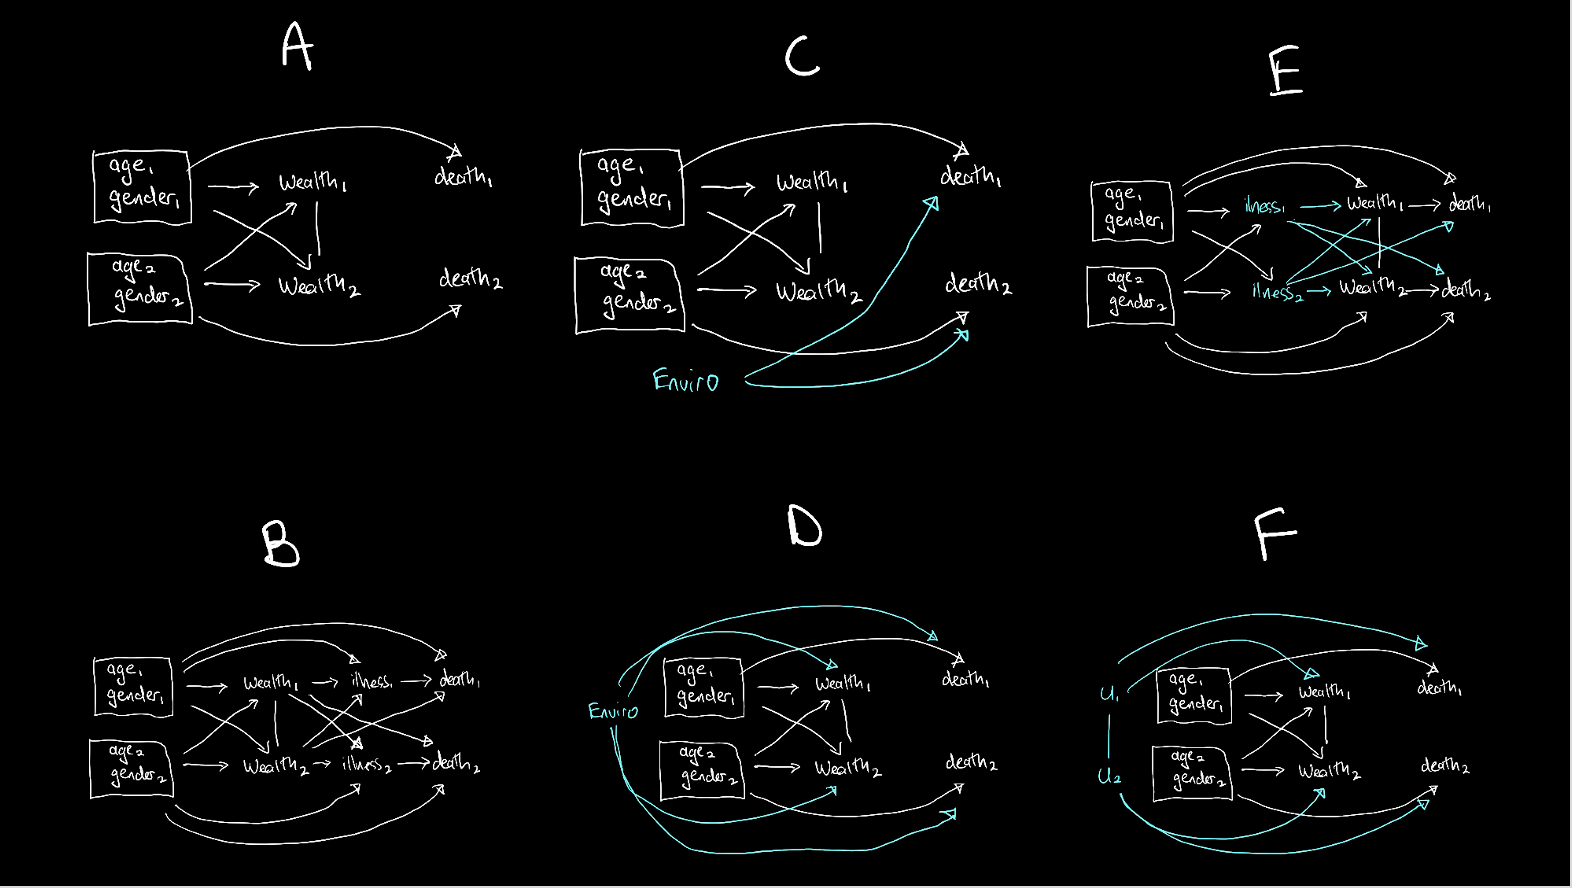 A
age₁
gender₁
Wealth₁
death₁
age₂
gender₂
Wealth₂
death₂
C
age₁
gender₁
Wealth₁
death₁
age₂
gender₂
Wealth₂
death₂
Enviro
E
age₁
gender₁
illness₁
Wealth₁
death₁
age₂
gender₂
illness₂
Wealth₂
death₂
B
age₁
gender₁
Wealth₁
illness₁
death₁
age₂
gender₂
Wealth₂
illness₂
death₂
D
age₁
gender₁
Wealth₁
death₁
Enviro
age₂
gender₂
Wealth₂
death₂
F
U₁
age₁
gender₁
Wealth₁
death₁
U₂
age₂
gender₂
Wealth₂
death₂